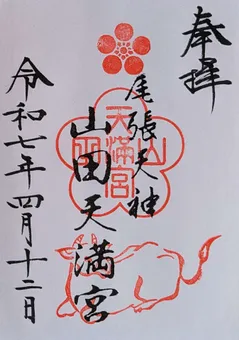 奉拝
尾張天神
山田天満宮
令和七年四月十二日
天満宮
山田